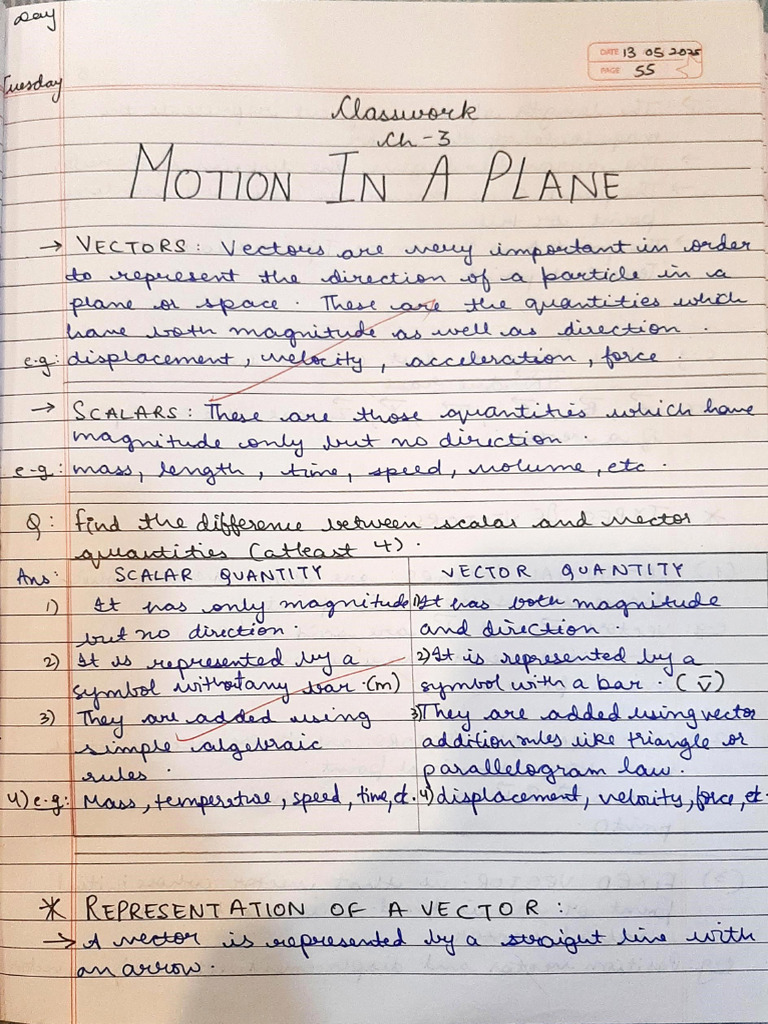 Day
DATE 13 05 2025
PAGE 55
Tuesday
Classwork
Ch-3
MOTION IN A PLANE
→ VECTORS: Vectors are very important in order
to represent the direction of a particle in a
plane or space. These are the quantities which
have both magnitude as well as direction.
e.g: displacement, velocity, acceleration, force.
→ SCALARS: These are those quantities which have
magnitude only but no direction.
e-g: mass, length, time, speed, volume, etc.
Q: Find the difference between scalar and vector
quantities (atleast 4).
Ans: SCALAR QUANTITY
1) It has only magnitude
but no direction.
2) It is represented by a
symbol without any bar. (m)
3) They are added using
simple algebraic
rules.
4) e.g: Mass, temperative, speed, time, et.
VECTOR QUANTITY
1) It has both magnitude
and direction.
2) It is represented by a
symbol with a bar. (v̄)
3) They are added using vector
addition rules like triangle or
parallelogram law.
4) displacement, velocity, force, et.
* REPRESENTATION OF A VECTOR:
→ A vector is represented by a straight line with
an arrow.